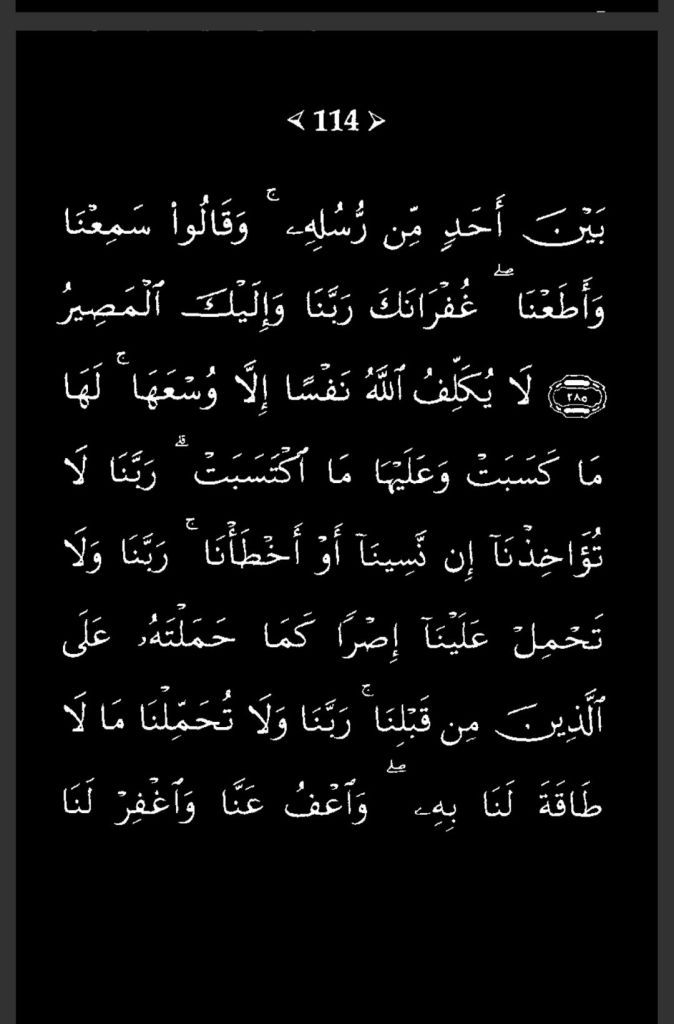 114
بَيْنَ أَحَدٍ مِّن رُّسُلِهِۦ ۚ وَقَالُوا۟ سَمِعْنَا
وَأَطَعْنَا ۖ غُفْرَانَكَ رَبَّنَا وَإِلَيْكَ ٱلْمَصِيرُ
٢٨٥ لَا يُكَلِّفُ ٱللَّهُ نَفْسًا إِلَّا وُسْعَهَا ۚ لَهَا
مَا كَسَبَتْ وَعَلَيْهَا مَا ٱكْتَسَبَتْ ۗ رَبَّنَا لَا
تُؤَاخِذْنَآ إِن نَّسِينَآ أَوْ أَخْطَأْنَا ۚ رَبَّنَا وَلَا
تَحْمِلْ عَلَيْنَآ إِصْرًا كَمَا حَمَلْتَهُۥ عَلَى
ٱلَّذِينَ مِن قَبْلِنَا ۚ رَبَّنَا وَلَا تُحَمِّلْنَا مَا لَا
طَاقَةَ لَنَا بِهِۦ ۖ وَٱعْفُ عَنَّا وَٱغْفِرْ لَنَا